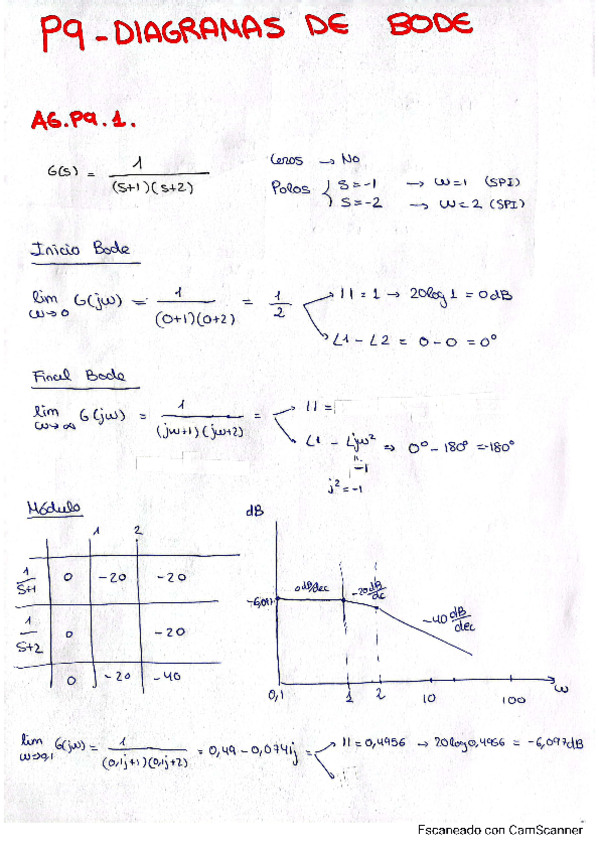 P9 - DIAGRAMAS DE BODE
A6.P9.1.
G(s) = 1 / (S+1)(S+2)
Ceros → No
Polos { S=-1 → ω=1 (SPI)
S=-2 → ω=2 (SPI)
Inicio Bode
lim ω→0 G(jω) = 1 / (0+1)(0+2) = 1/2
|| = 1 → 20log 1 = 0dB
∠1 - ∠2 = 0 - 0 = 0°
Final Bode
lim ω→∞ G(jω) = 1 / (jω+1)(jω+2) =
|| =
∠1 - ∠jω² ⇒ 0° - 180° = -180°
-1
j² = -1
Módulo
1 2
1/S+1 0 -20 -20
1/S+2 0 -20
0 -20 -40
dB
0 dB/dec
-20 dB/dc
-40 dB/dec
0,1 1 2 10 100 ω
lim ω→0,1 G(jω) = 1 / (0,1j+1)(0,1j+2) = 0,49 - 0,0741j
|| = 0,4956 → 20log 0,4966 = -6,097dB
Escaneado con CamScanner